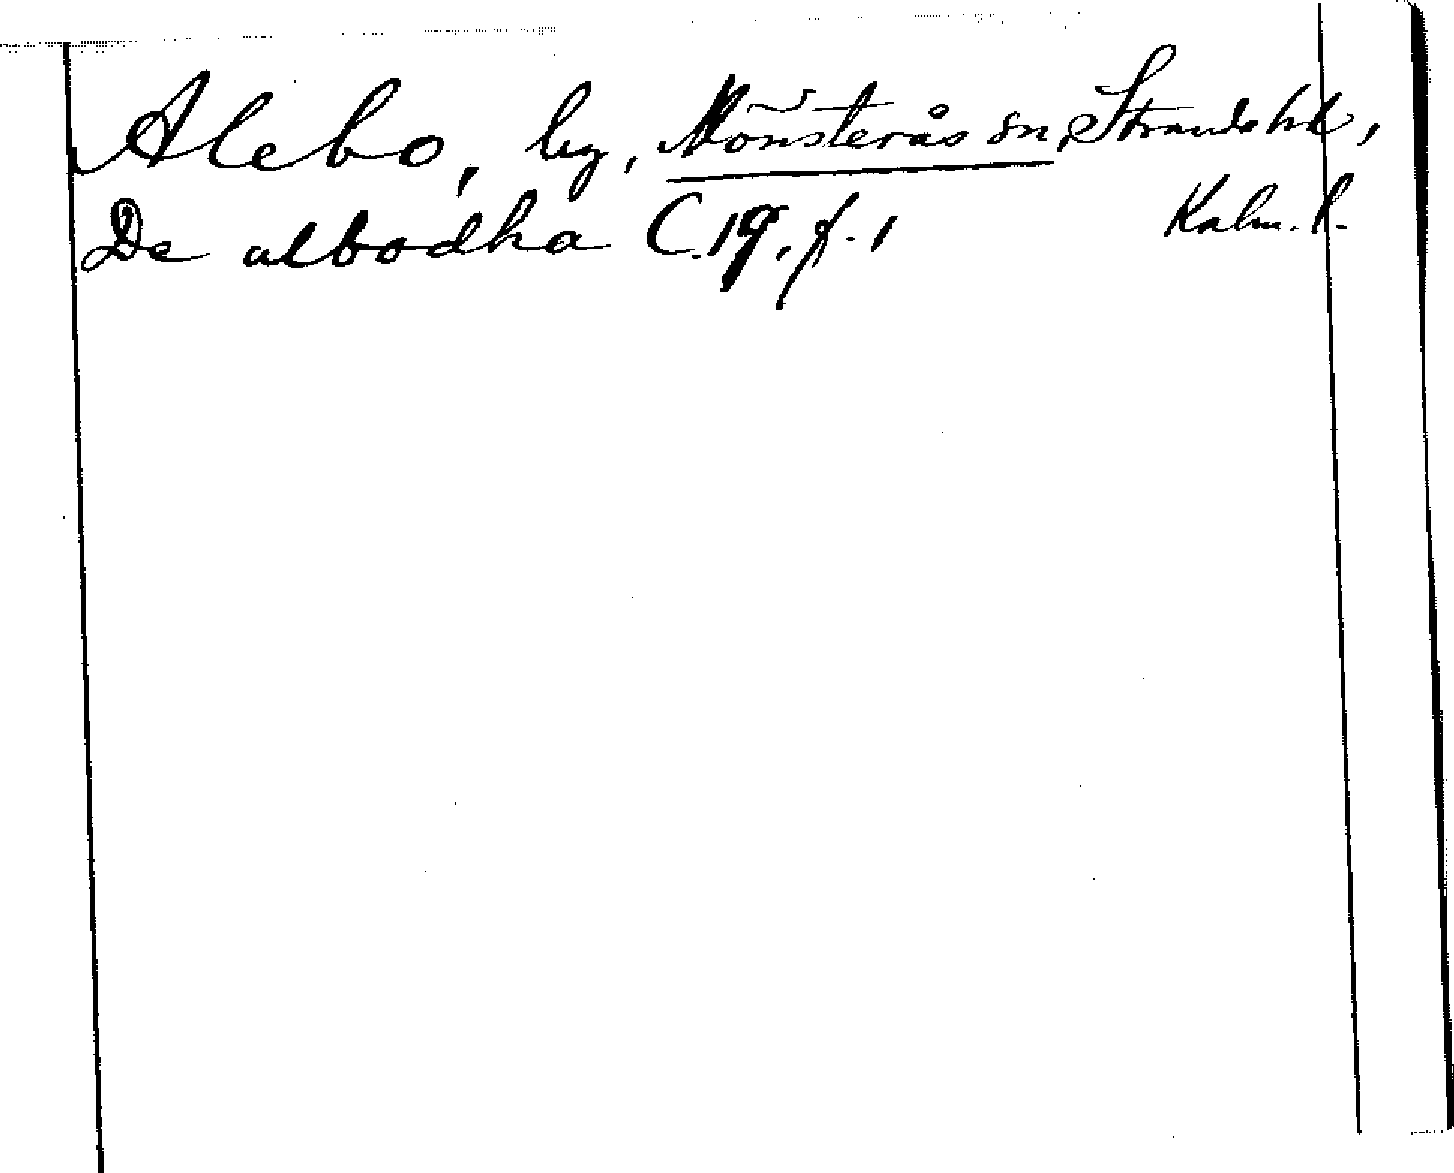 Alebo, by, Mönsterås sn, Stranda hd,
Kalm. l.
De albodha C. 19, f. 1